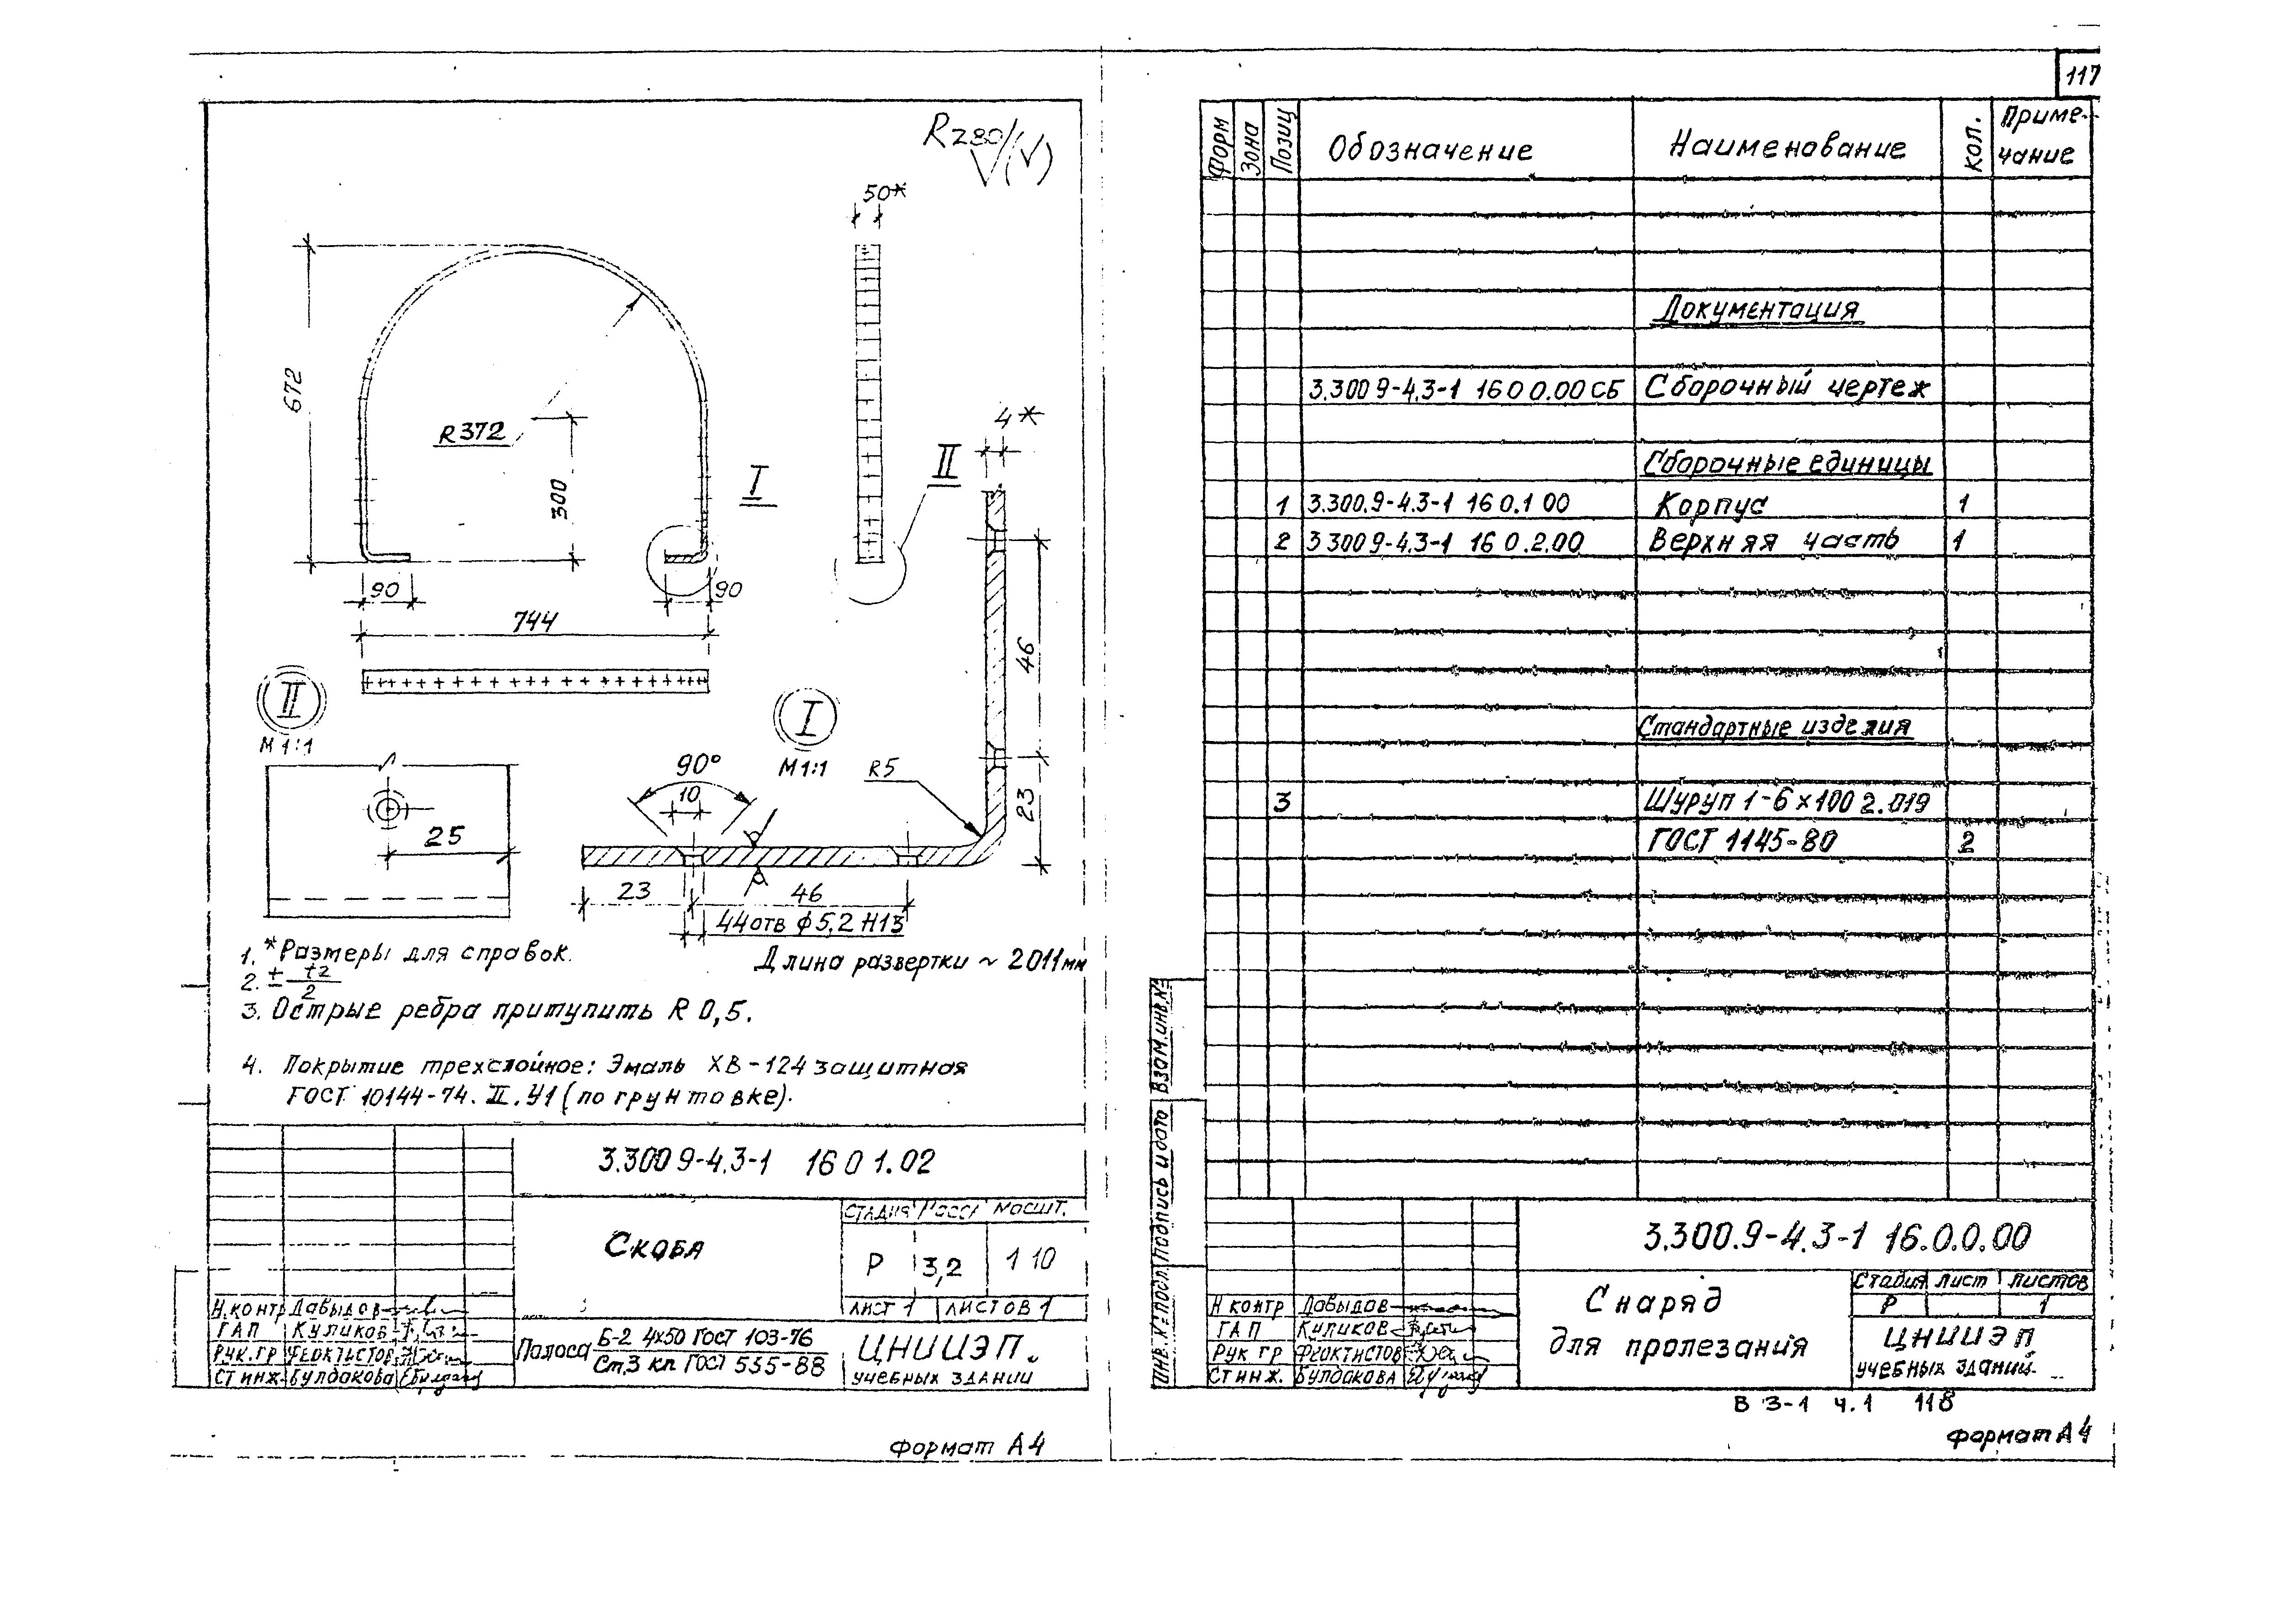 117
Rz80 (√)
50*
672
R372
300
I
II
4*
90
90
744
46
23
II
М 1:1
I
М 1:1
R5
90°
10
25
23
46
44 отв ϕ5,2 Н13
1. *Размеры для справок.
Длина развертки ~ 2011мм
2. ± t2/2
3. Острые ребра притупить R 0,5.
4. Покрытие трехслойное: Эмаль ХВ-124 защитная
ГОСТ 10144-74. II. У1 (по грунтовке).
3.300 9-4.3-1 16 0 1.02
Скоба
Стадия Масса Масшт.
Р 3,2 1 10
Лист 1 Листов 1
Н.контр Давыдов
ГАП Куликов
Рук.гр Феоктистов
Ст инж. Булдакова
Полоса Б-2 4х50 ГОСТ 103-76
Ст.3 кп ГОСТ 535-88
ЦНИИЭП
учебных зданий
Формат А4
Форм Зона Позиц Обозначение Наименование Кол. Приме-
чание
Документация
3.300 9-4.3-1 16 0 0.00 СБ Сборочный чертеж
Сборочные единицы
1 3.300.9-4.3-1 16 0.1 00 Корпус 1
2 3 300 9-4.3-1 16 0.2.00 Верхняя часть 1
Стандартные изделия
3 Шуруп 1-6×100 2.019
ГОСТ 1145-80 2
Взам.инв.№
Подпись и дата
Инв.№ подл.
3.300.9-4.3-1 16.0.0.00
Снаряд
для пролезания
Стадия Лист Листов
Р 1
Н контр Давыдов
ГАП Куликов
Рук гр Феоктистов
Ст инж. Булдакова
ЦНИИЭП
учебных зданий
В 3-1 ч.1 118
Формат А4